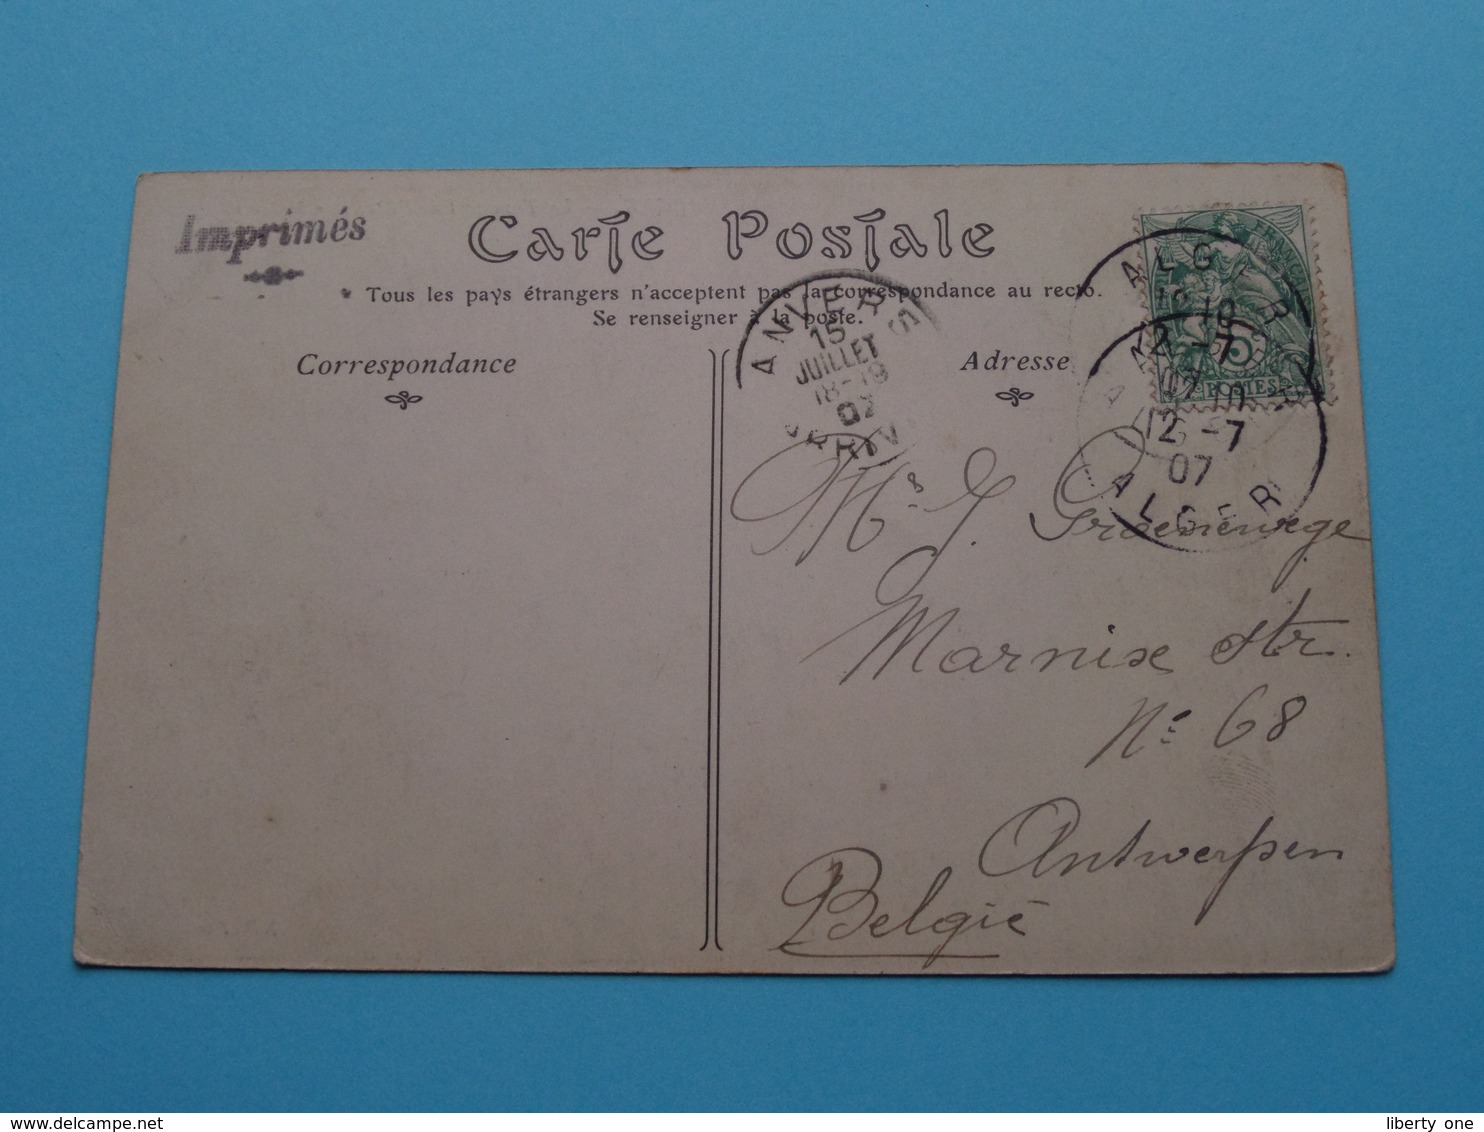 Imprimés
Carte Postale
Tous les pays étrangers n'acceptent pas la correspondance au recto.
Se renseigner à la poste.
Correspondance
Adresse
ANVERS
15
JUILLET
18-19
07
ALGER
12-7
07
ALGER
12-7
07
POSTES
Mr J. Groenenwege
Marnix Str.
No 68
Antwerpen
België
liberty one